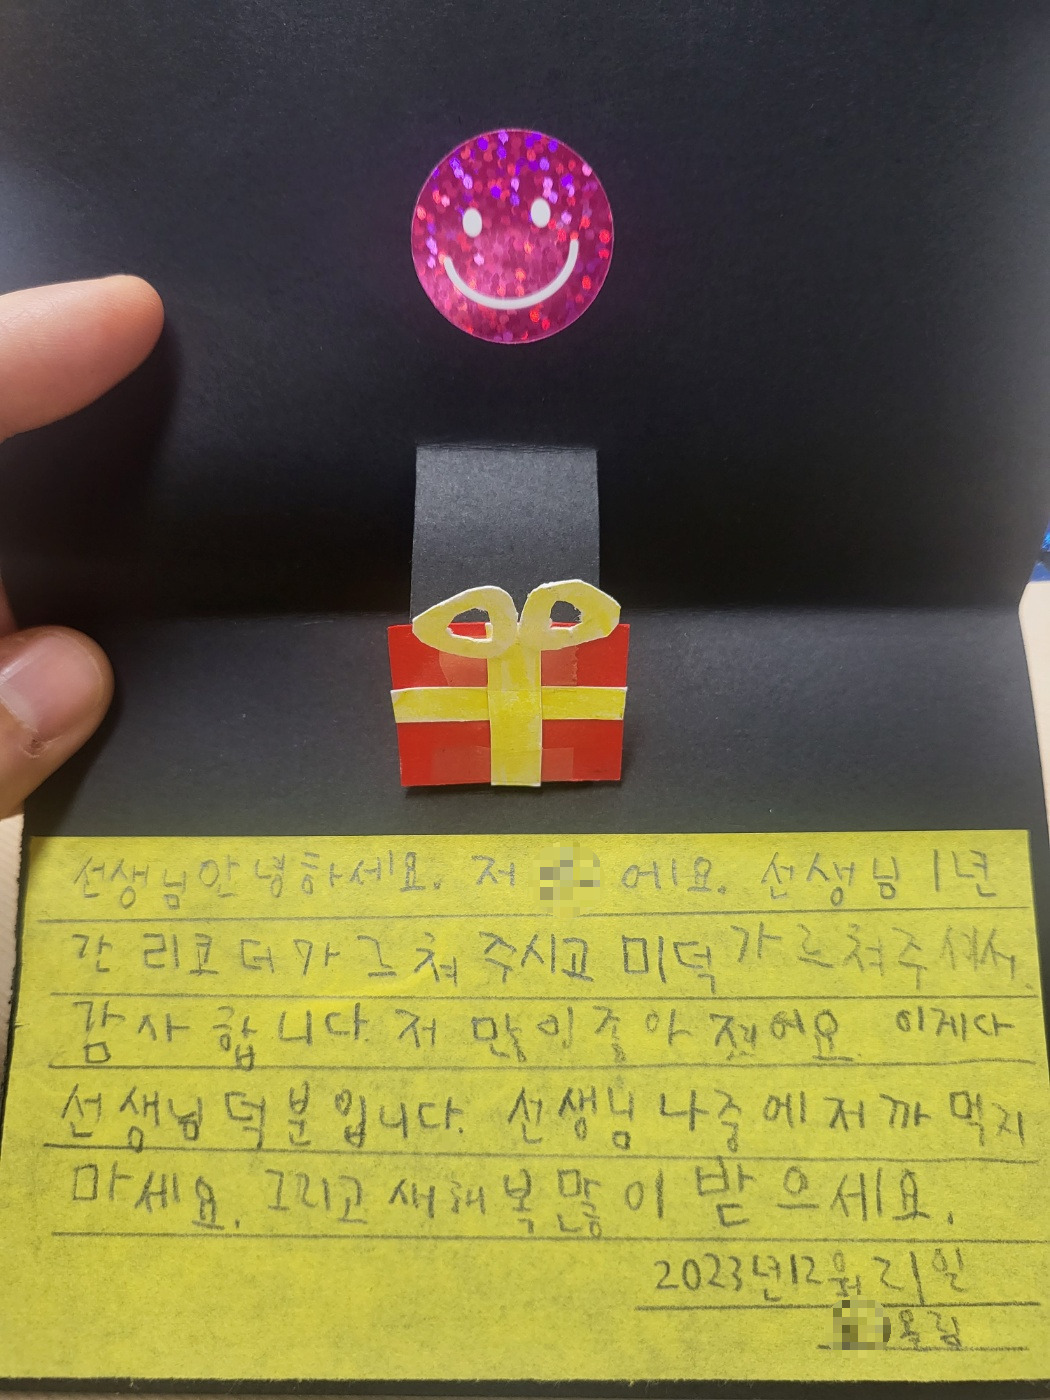 선생님 안녕하세요. 저 에요. 선생님 1년
간 리코더 가르쳐 주시고 미덕 가르쳐주셔서
감사합니다. 저 많이 좋아졌어요 이게 다
선생님 덕분입니다. 선생님 나중에 저 까먹지
마세요. 그리고 새해 복 많이 받으세요.
2023년 12월 21일
올림